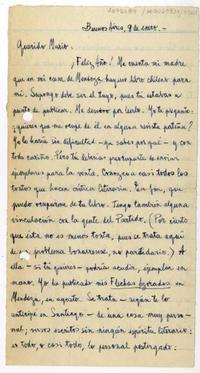 Buenos Aires, 9 de enero.
Querido Mario:
¡Feliz año! Me cuenta mi madre
que en mi casa de Mendoza hay un libro chileno para
mí. Supongo debe ser el tuyo, pues tú estabas a
punto de publicar. Me devoro por leerlo. Ya te pregunto:
¿quieres que me ocupe de él en alguna revista porteña?
Yo lo haría sin dificultad —ya sabes por qué— y con
todo cariño. Pero tú deberías preocuparte de enviar
ejemplares para la venta. Conozco a casi todos los
tontos que hacen crítica literaria. En fin, que
puedo ocuparme de tu libro. Tengo también alguna
vinculación con la gente del Partido. (Por cierto
que ésta no es menos tonta, pues se trata aquí
de un problema bonaerense, no partidario.) A
ella —si tú quieres— podría acudir, ejemplar en
mano. Yo he publicado mis Flechas
en
Mendoza, en agosto. Se trata —según te lo
anticipé en Santiago— de una cosa muy perso-
nal; versos escritos sin ningún espíritu literario:
es todo, o casi todo, lo personal postergado.